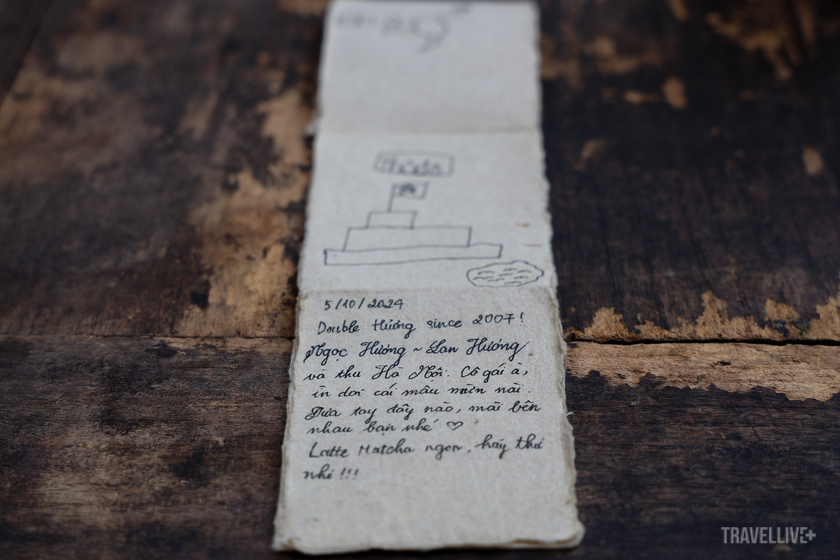 5/10/2024
Double Hương since 2007!
Ngọc Hương ~ Lan Hương
và thu Hà Nội. Cô gái à,
in dơi cái mầu miên nài.
Đưa tay đây nào, mãi bên
nhau bạn nhé ♡
Latte Matcha ngon, hãy thử
nhé!!!
TRAVELLIVE+